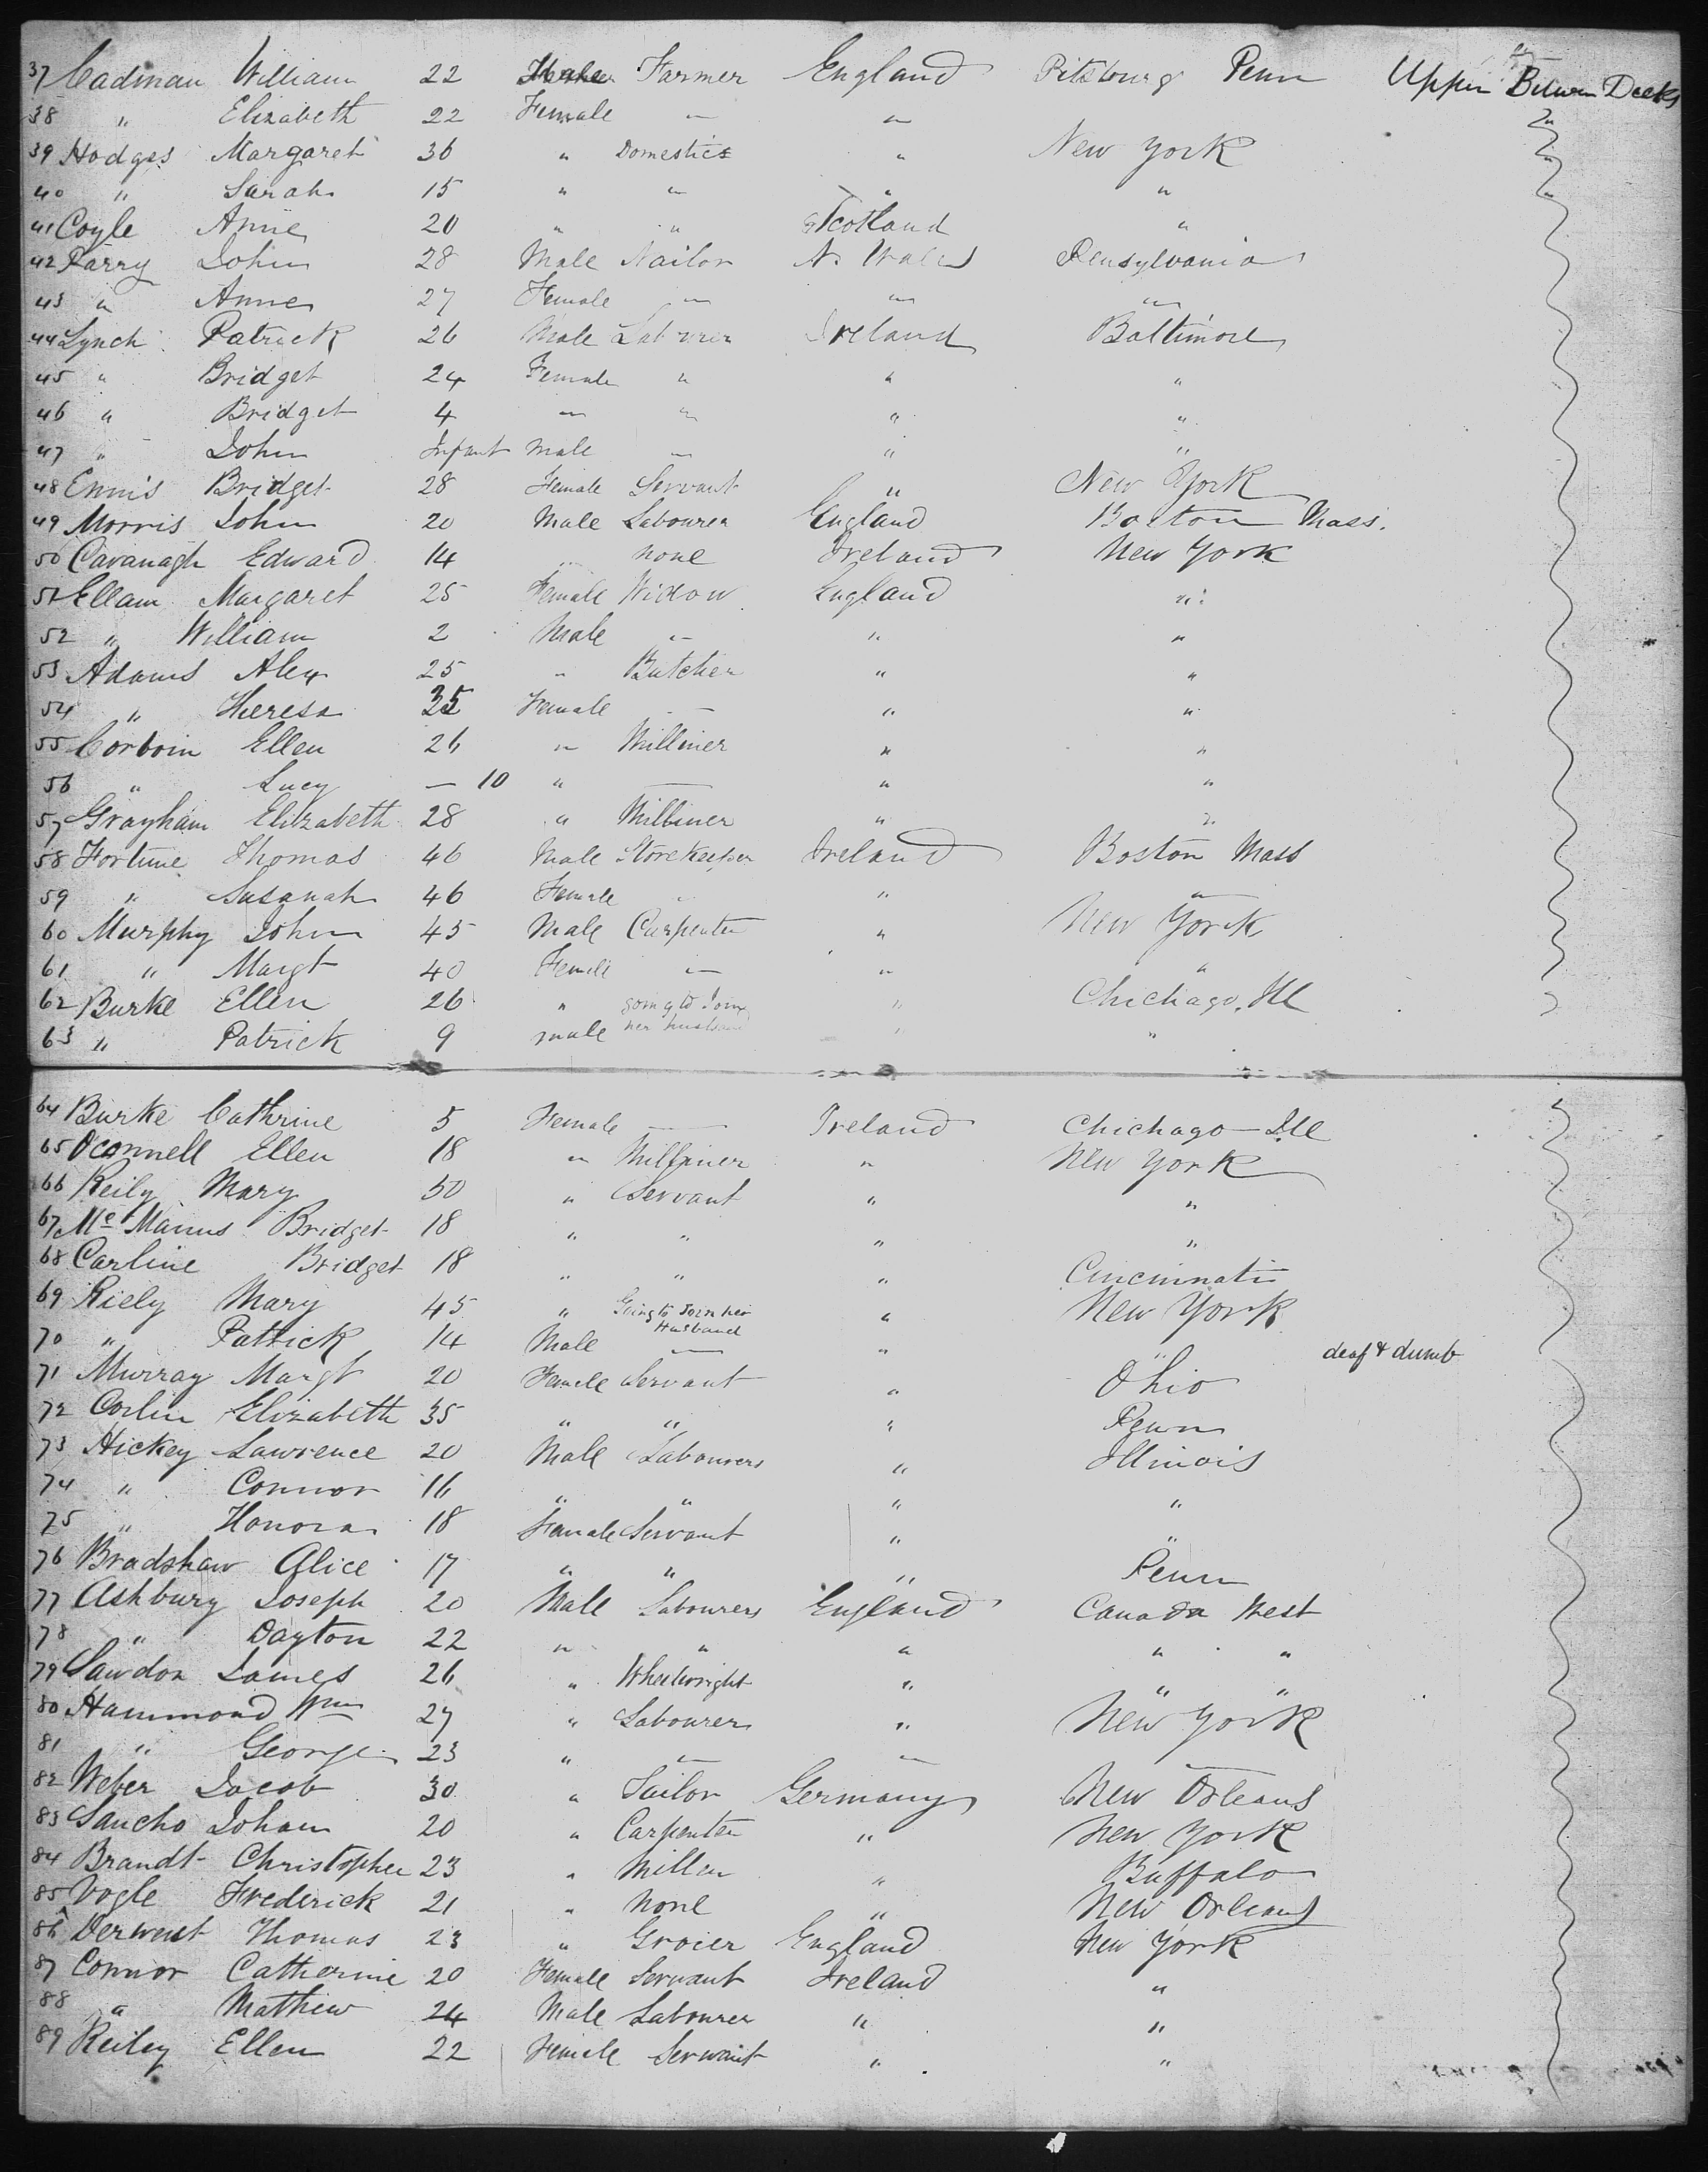 37 Cadman William 22 Male Farmer England Pitsburg Penn Upper Between Decks
38 " Elizabeth 22 Female " "
39 Hodges Margaret 36 " Domestics " New York
40 " Sarah 15 " " " "
41 Coyle Anne 20 " " Scotland "
42 Parry John 28 Male Nailor N. Wales Pensylvania
43 " Anne 27 Female " " "
44 Lynch Patrick 26 Male Labourer Ireland Baltimore
45 " Bridget 24 Female " " "
46 " Bridget 4 " " " "
47 " John Infant Male " " "
48 Ennis Bridget 28 Female Servant " New York
49 Morris John 20 Male Labourer England Boston Mass.
50 Cavanagh Edward 14 " none Ireland New York
51 Ellam Margaret 25 Female Widow England "
52 " William 2 Male " " "
53 Adams Alex 25 " Butcher " "
54 " Theresa Female " " "
55 Corboin Ellen 26 " Milliner " "
56 " Lucy — 10 " — " "
57 Grayham Elizabeth 28 " Milliner " "
58 Fortune Thomas 46 Male Storekeeper Ireland Boston Mass
59 " Susanah 46 Female " " "
60 Murphy John 45 Male Carpenter " New York
61 " Margt 40 Female " " "
62 Burke Ellen 26 " going to Join " Chichago, Ill
her husband
63 " Patrick 9 male " "
64 Burke Cathrine 5 Female — Ireland Chichago Ill
65 Oconnell Ellen 18 " Milliner " New York
66 Reily Mary 50 " Servant " "
67 Mc Manus Bridget 18 " " " "
68 Carline Bridget 18 " " " Cincinnati
69 Riely Mary 45 " Going to Join her " New York
Husband
70 " Patrick 14 Male — " " deaf & dumb
71 Murray Margt 20 Female Servant " Ohio
72 Corlin Elizabeth 35 " " " Penn
73 Hickey Lawrence 20 Male Labourers " Illinois
74 " Connor 16 " " " "
75 " Honora 18 Female Servant " "
76 Bradshaw Alice 17 " " " Penn
77 Ashbury Joseph 20 Male Labourers England Canada West
78 " Dayton 22 " " " " "
79 Sawdon James 26 " Wheelwright " " "
80 Hammond Wm 27 " Labourer " New York
81 " George 23 " " " "
82 Weber Jacob 30 " Tailor Germany New Orleans
83 Sancho Johan 20 " Carpenter " New York
84 Brandt Christopher 23 " Miller " Buffalo
85 Vogle Frederick 21 " None " New Orleans
86 Derwent Thomas 23 " Grocer England New York
87 Connor Catherine 20 Female Servant Ireland "
88 " Mathew 24 Male Labourer " "
89 Reiley Ellen 22 Female Servant " "